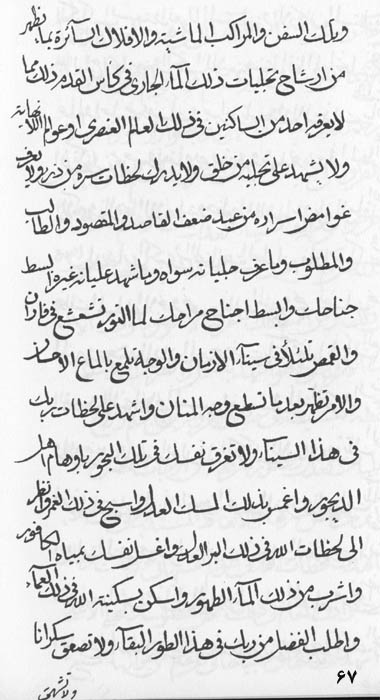 وبتلك السفن والمراكب الماشية والافلاك السائرة بما يظهر
من ارشاح تجليات ذلك المآء الجارى فى كأس القدم ذلك مما
لا يعرفه احد من الساكنين فى ذلك العالم العنصرى وعوالم اللانهاية
ولا يشهد على تجليه من خلق ولا يدرك لحظات سره من ذر ولا يعرف
غوامض اسراره من عبد ضعف القاصد والمقصود والطالب
والمطلوب وما عرف جلياته سواه وما شهد عليانه غيره ابسط
جناحك وابسط اجتاحى مراحك لما النور تشعشع فى فاران
والقمص تلئلأ فى سيناء الازمان والوجه تلمع بالماع الاحسان
والامر تظهر بعد ما تسطع وجه المنان واشهد على لحظات ربك
فى هذا السيناء ولا تغرق نفسك فى تلك البحور باوهام اهل
الديجور واغمس بذلك المسك العلم واسبح فى ذلك الغمر وانظر
الى لحظات الله فى ذلك البر واغسل نفسك بمياه الكافور
واشرب من ذلك المآء الطهور واسكن بسكينة الله فى ذلك العماء
واطلب الفضل من ربك فى هذا الطور البقآء ولا تصعق سكرانا
ولا تشهق
٦٧